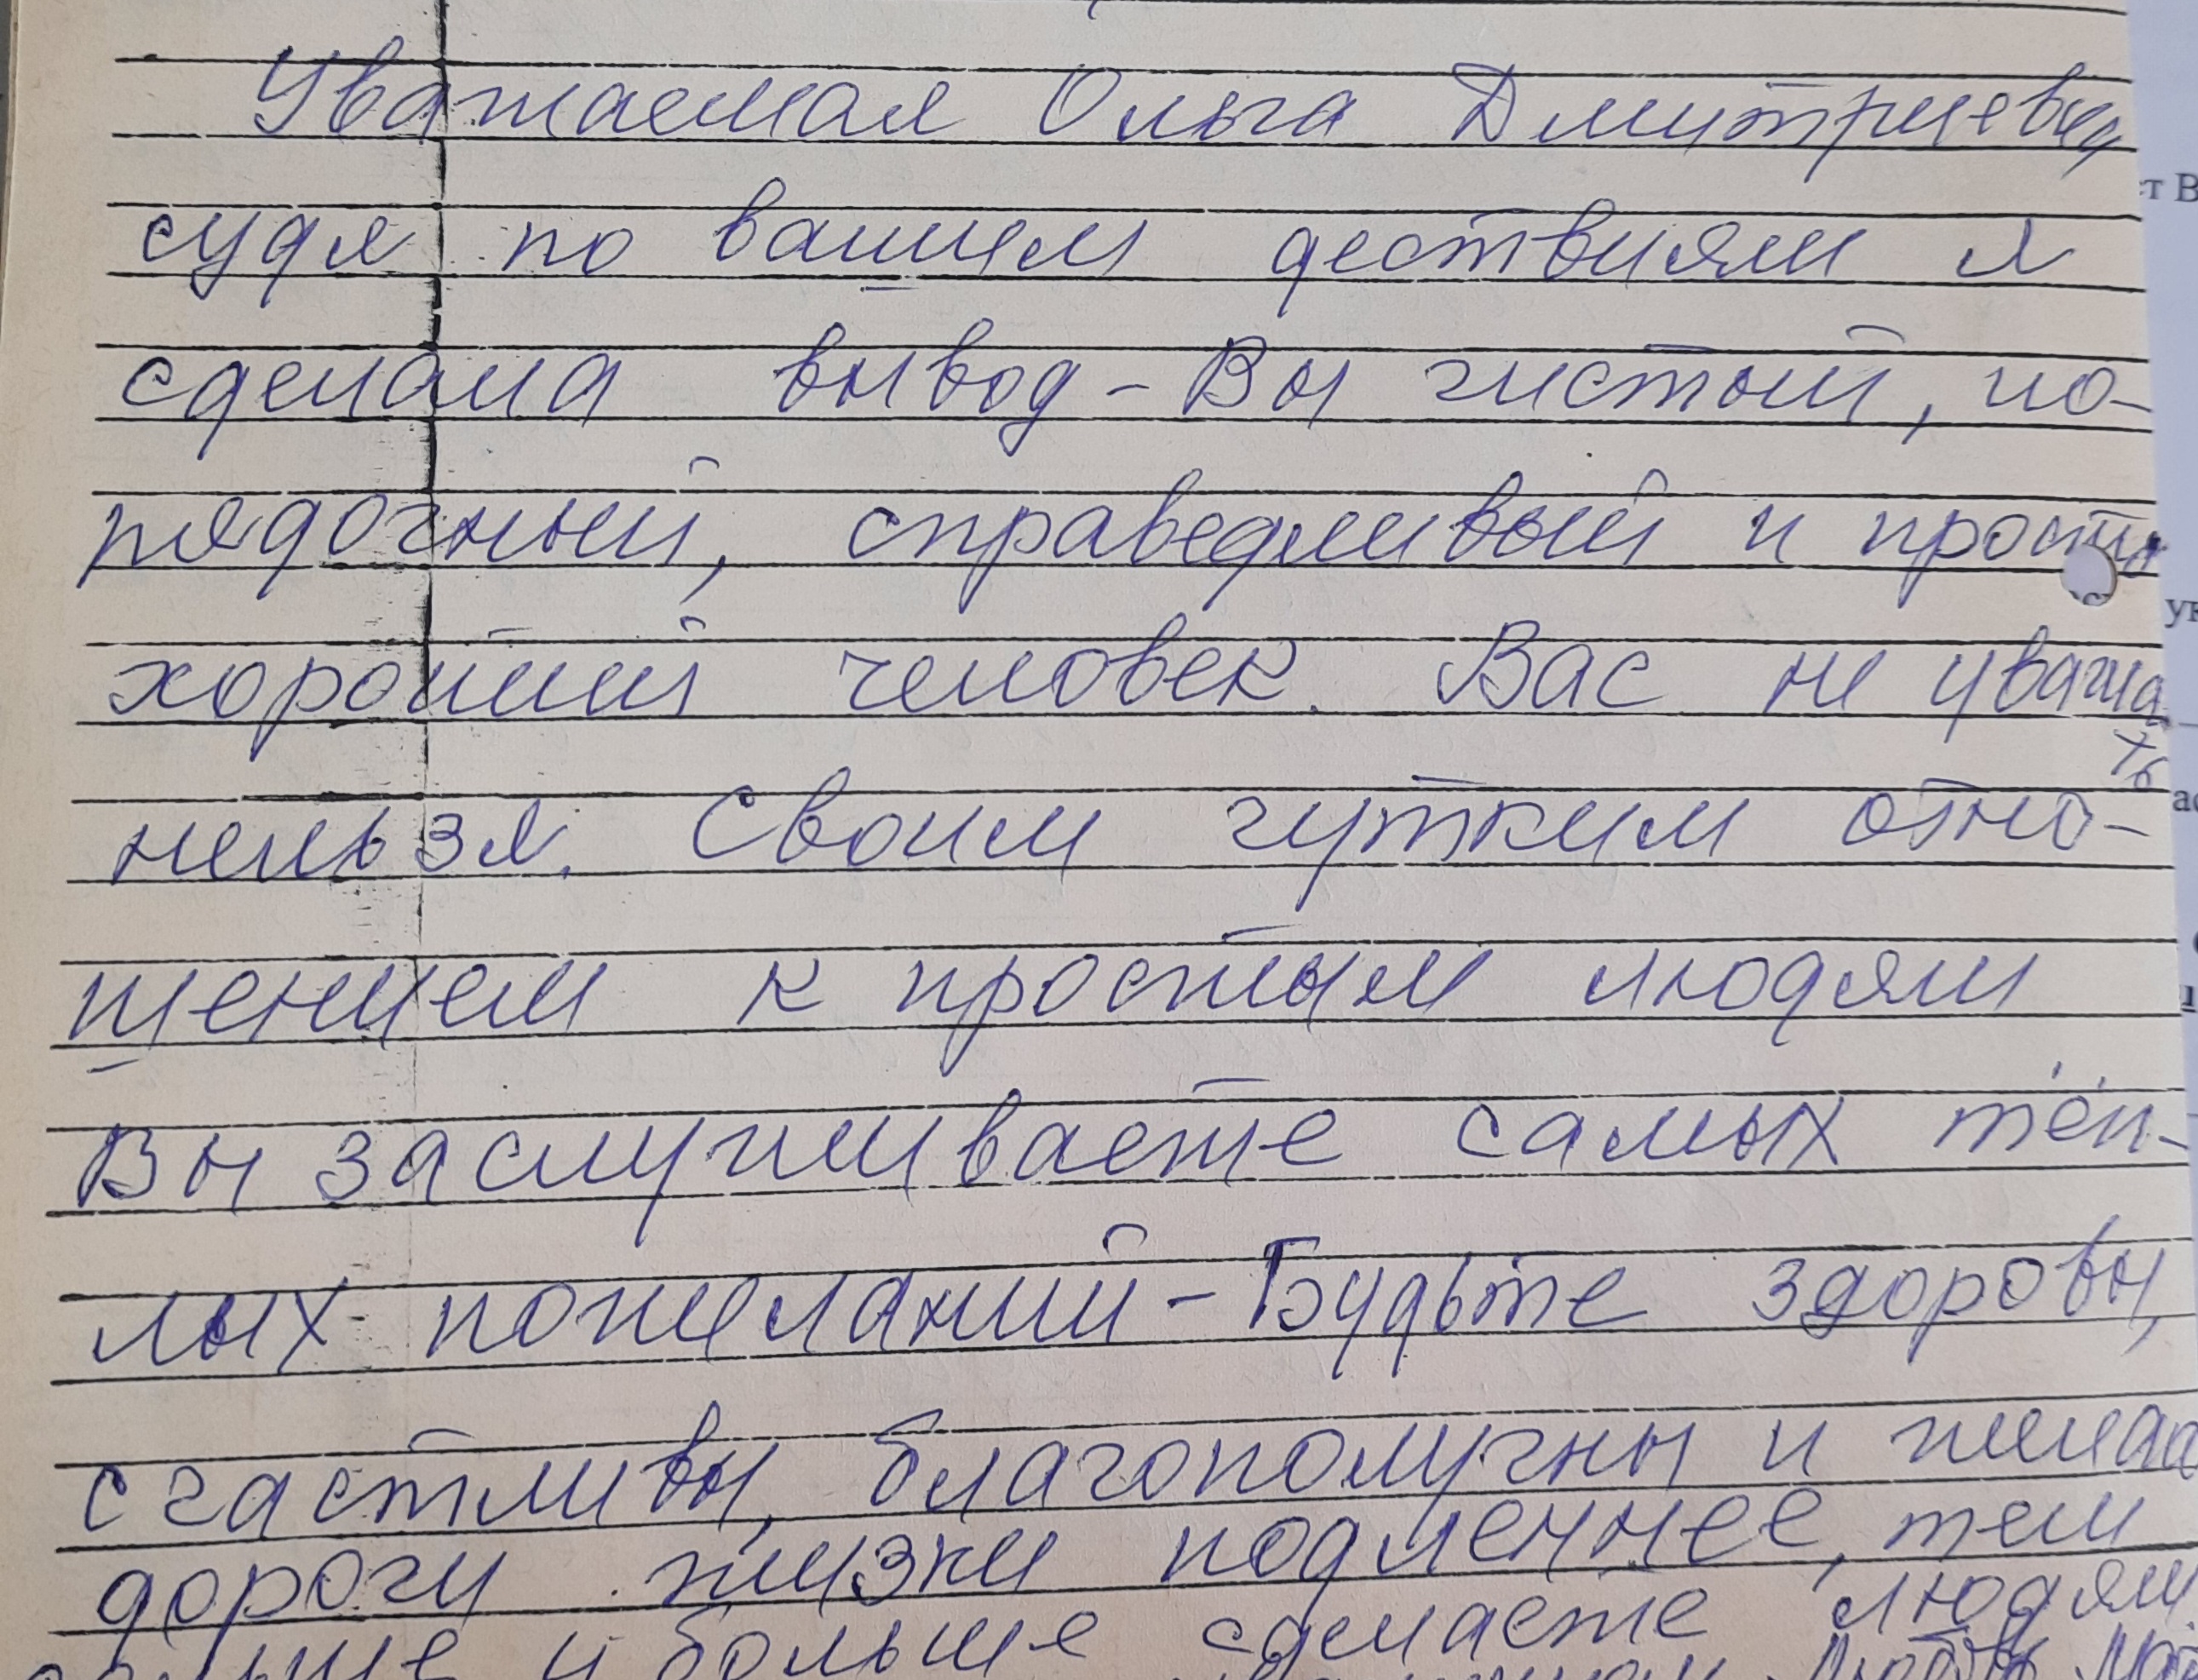 Уважаемая Ольга Дмитриевна
судя по вашим дествиям я
сделала вывод - Вы чистый, по-
рядочный, справедливый и просто
хороший человек. Вас не уважа
ть
нельзя. Своим чутким отно-
шением к простым людям
Вы заслуживаете самых тёп-
лых пожеланий - Будьте здоровы,
счастливы, благополучны и желаю
дороги жизни подленнее, тем
и больше сделаете людям